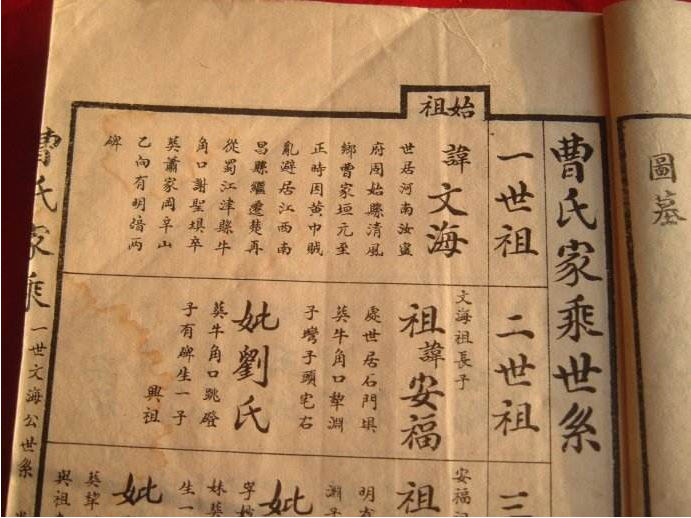 圖墓
曹氏家乘世系
始祖
一世祖
諱文海
世居河南汝寍
府固始縣清風
鄉曹家垣元至
正時因黃巾賊
亂避居江西南
昌縣繼遷楚再
從蜀江津縣牛
角口謝聖垻卒
葬蕭家岡阜山
乙向有明堷兩
碑
二世祖
文海祖長子
祖諱安福
處世居石門垻
葬牛角口犂淵
子灣子頭宅右
妣劉氏
葬牛角口跳磴
子有碑生一子
興祖
三
安福
祖
明友
淵
妣
妹葬
生一
妣
葬犂
與祖
曹氏家乘
一世文海公世系